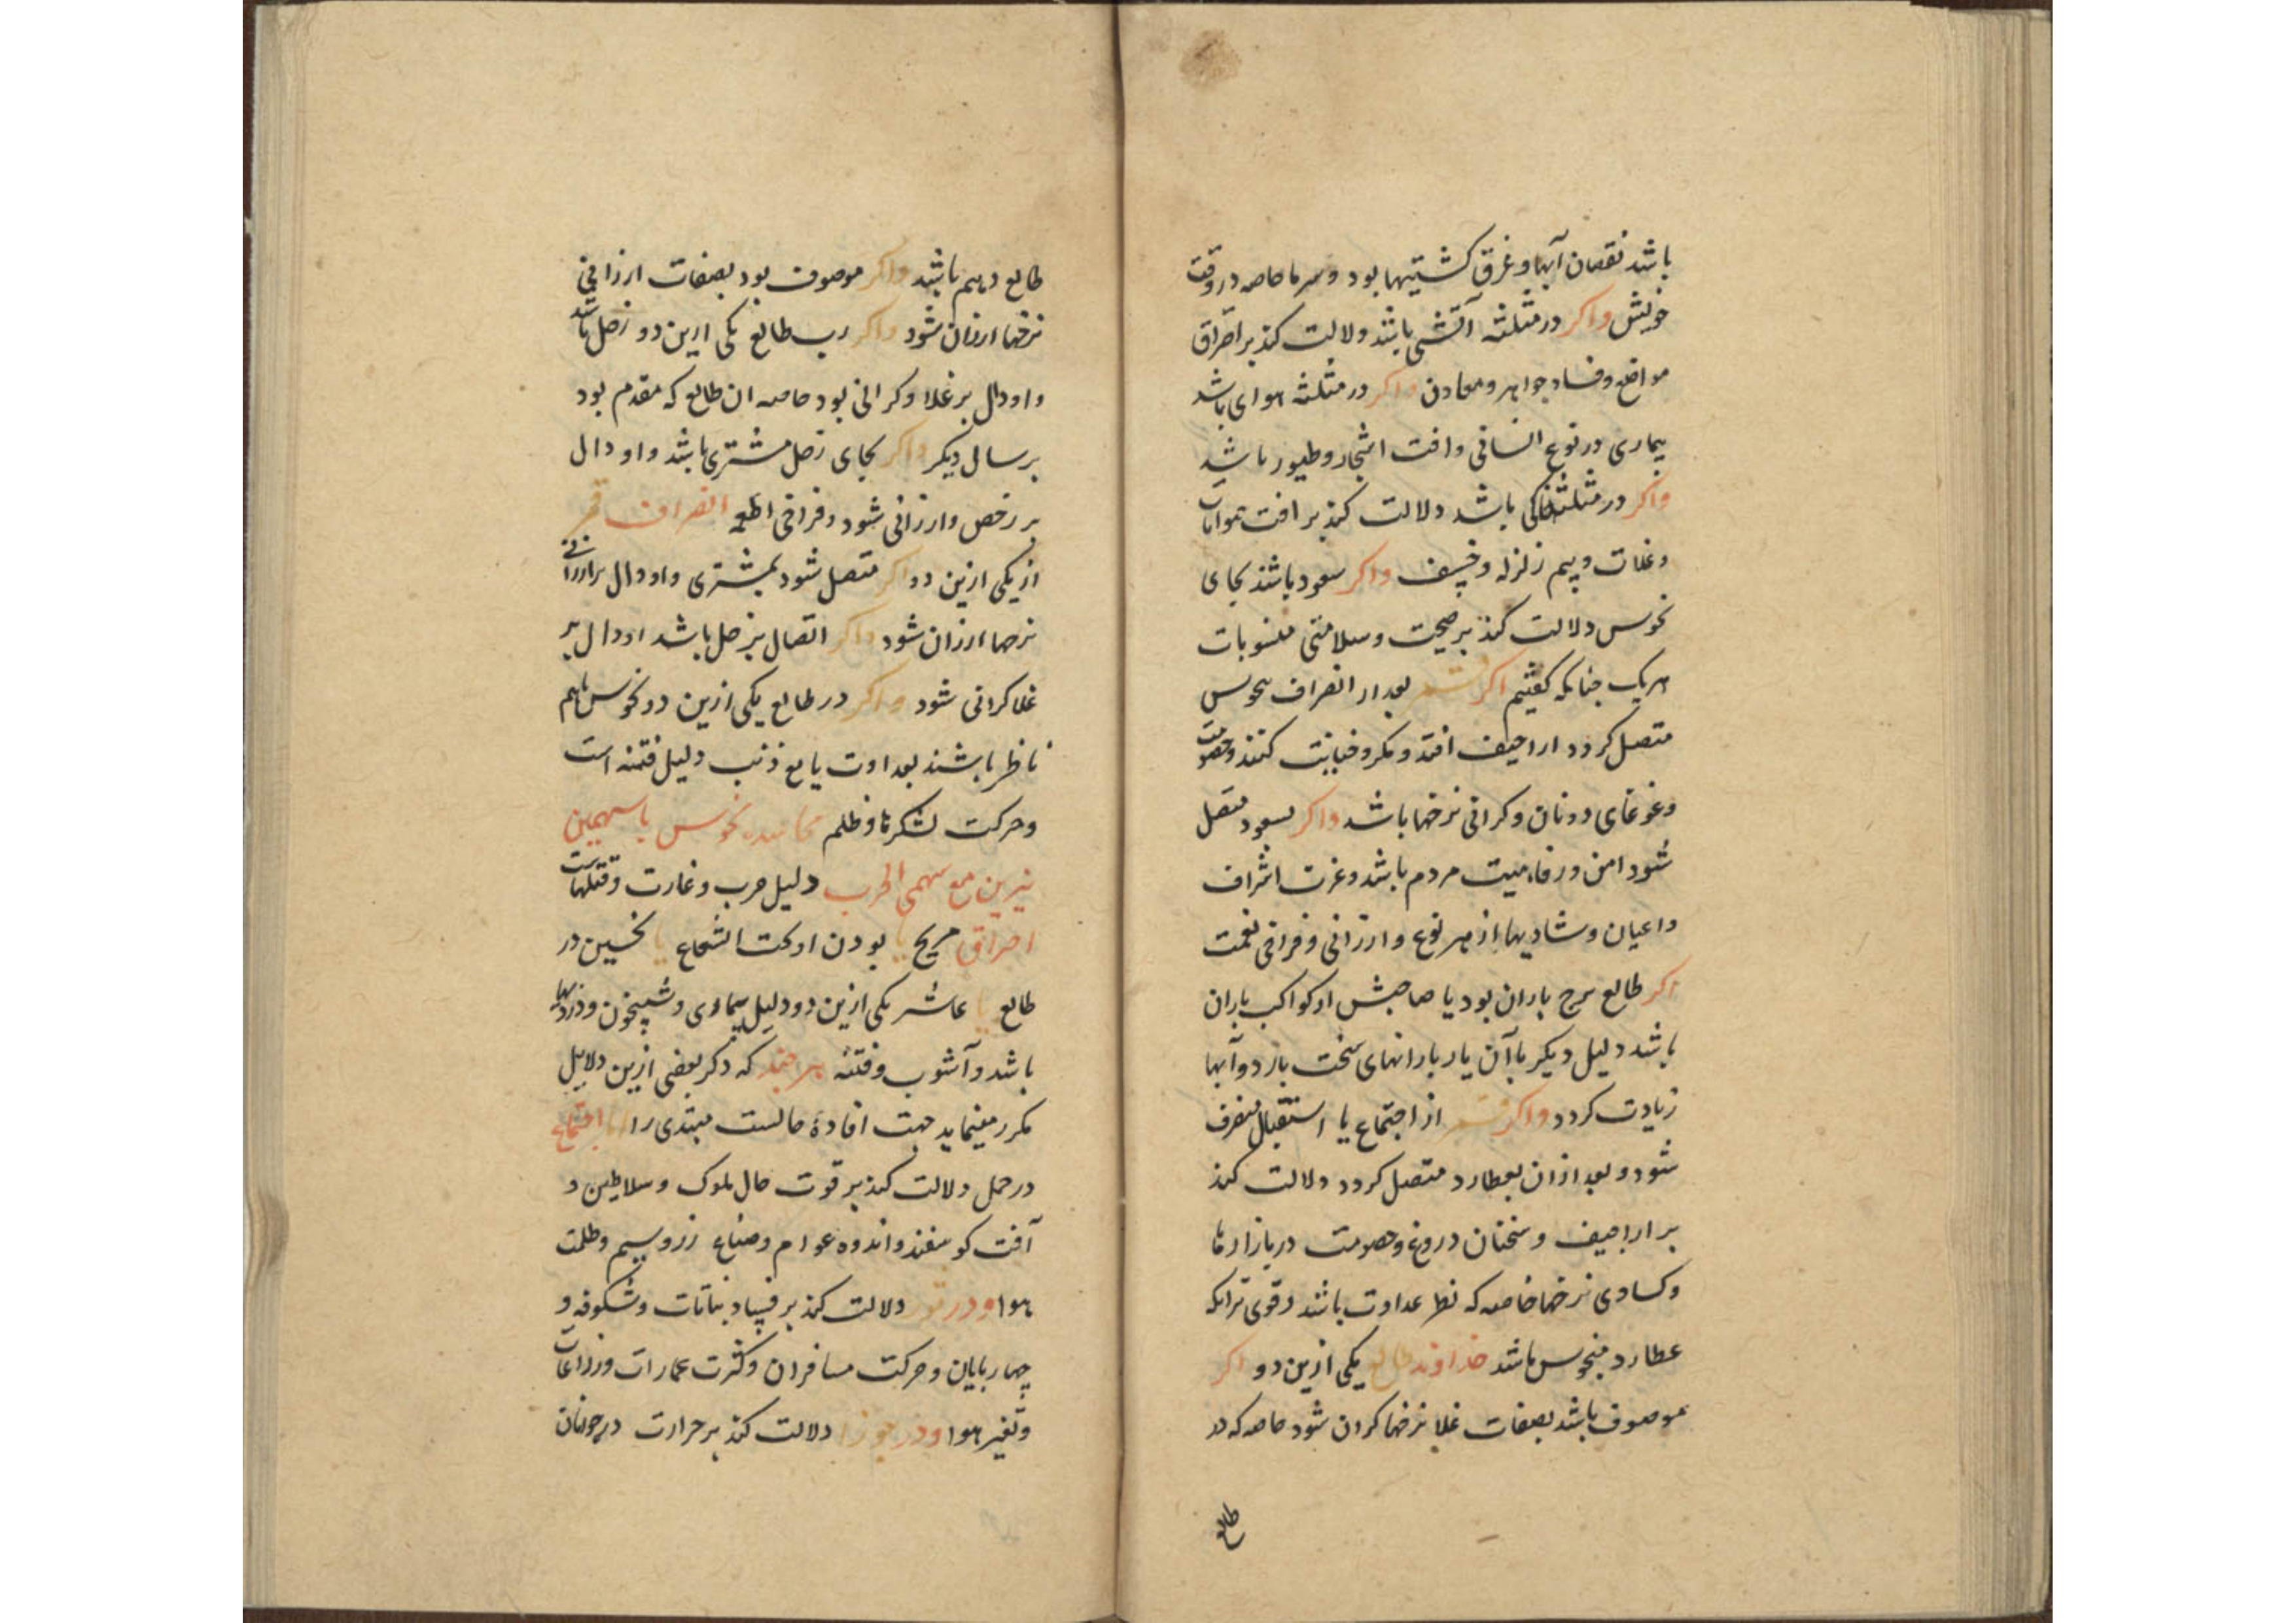 باشد نقصان آبها و غرق کشتیها بود و سرما خاصه در وقت
خویش و اکر در مثلثه آتشی باشد دلالت کند بر احتراق
مواضع و فساد جواهر و معادن و اکر در مثلثه هوای باشد
بیماری در نوع انسانی و افت اشجار و طیور باشد
و اکر در مثلثه خاکی باشد دلالت کند بر افت
و غلات و بیم زلزله و خسف و اکر سعود باشد بجای
نحوس دلالت کند بر صحت و سلامتی منسوبات
هریک چنانکه کفتیم اکر قمر بعد از انصراف بنحوس
متصل کردد اراجیف افتد و مکر و خیانت کنند و خصومت
و غوغای دونان و کرانی نرخها باشد و اکر بسعود متصل
شود امن و رفاهیت مردم باشد و عزت اشراف
و اعیان و شادیها از هر نوع و ارزانی و فراخی نعمت
اکر طالع برج باران بود یا صاحبش از کواکب باران
باشد دلیل دیکر با آن یار بارانهای سخت بارد و آبها
زیادت کردد و اکر قمر از اجتماع یا استقبال منصرف
شود و بعد ازان بعطارد متصل کردد دلالت کند
بر اراجیف و سخنان دروغ و خصومت در بازارها
و کسادی نرخها خاصه که نظر عداوت باشد و قوی تر انکه
عطارد منحوس باشد خداوند طالع یکی ازین دو اکر
موصوف باشد بصفات غلا نرخها کران شود خاصه که در
طالع
طالع دهم باشد و اکر موصوف بود بصفات ارزانی
نرخها ارزان شود و اکر رب طالع یکی ازین دو زحل باشد
و او دال بر غلا و کرانی بود خاصه ان طالع که مقدم بود
بر سال دیکر و اکر بجای زحل مشتری باشد و او دال
بر رخص و ارزانی شود و فراخی اطعمه انصراف قمر
از یکی ازین دو اکر متصل شود بمشتری و او دال بر ارزانی
نرخها ارزان شود و اکر اتصال بزحل باشد او دال بر
غلا کرانی شود و اکر در طالع یکی ازین دو نحوس باهم
ناظر باشند بعداوت یا مع ذنب دلیل فتنه است
و حرکت لشکرها و ظلم نحوس با سهمین
نیرین مع سهمی الحرب دلیل حرب و غارت و قتلهاست
احتراق مریخ یا بودن او تحت الشعاع یا نحسین در
طالع یا عاشر یکی ازین دو دلیل بیماری و شبیخون و دزدیها
باشد و آشوب و فتنه هرچند که ذکر بعضی ازین دلایل
مکرر مینماید جهت افادهٔ حالست مبتدی را اما اجتماع
در حمل دلالت کند بر قوت حال ملوک و سلاطین و
آفت کوسفند و اندوه عوام و صناع زر و سیم و ظلمت
هوا و در ثور دلالت کند بر فساد نباتات و شکوفه و
چهارپایان و حرکت مسافران و کثرت عمارات و زراعات
و تغیر هوا و در جوزا دلالت کند بر حرارت